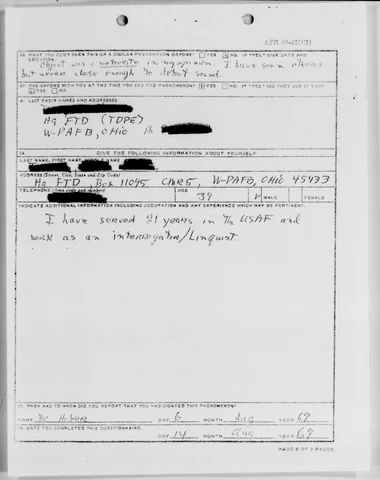 AFR 80-17(C1)
32. HAVE YOU EVER SEEN THIS OR A SIMILAR PHENOMENON BEFORE? YES NO. IF "YES", GIVE DATE AND
object was a meteorite in my opinion. I have seen others
but never close enough to detect sound.
33. WAS ANYONE WITH YOU AT THE TIME YOU SAW THE PHENOMENON? YES NO. IF "YES", DID THEY SEE IT TOO?
YES NO
A. LIST THEIR NAMES AND ADDRESSES
Hq FTD (TDPE)
W-PAFB, Ohio
34. GIVE THE FOLLOWING INFORMATION ABOUT YOURSELF
LAST NAME, FIRST NAME, MIDDLE NAME
ADDRESS (Street, City, State and Zip Code)
Hq FTD, Box 11095 CMR5, W-PAFB, Ohio 45433
TELEPHONE AGE
39 MALE
INDICATE ADDITIONAL INFORMATION INCLUDING OCCUPATION AND ANY EXPERIENCE WHICH MAY BE PERTINENT.
I have served 21 years in the USAF and
work as an interrogator/Linguist.
35. WHEN AND TO WHOM DID YOU REPORT THAT YOU HAD SIGHTED THIS PHENOMENON?
NAME DAY 6 MONTH Aug YEAR 69
36. DATE YOU COMPLETED THIS QUESTIONNAIRE.
DAY 14 MONTH Aug YEAR 69